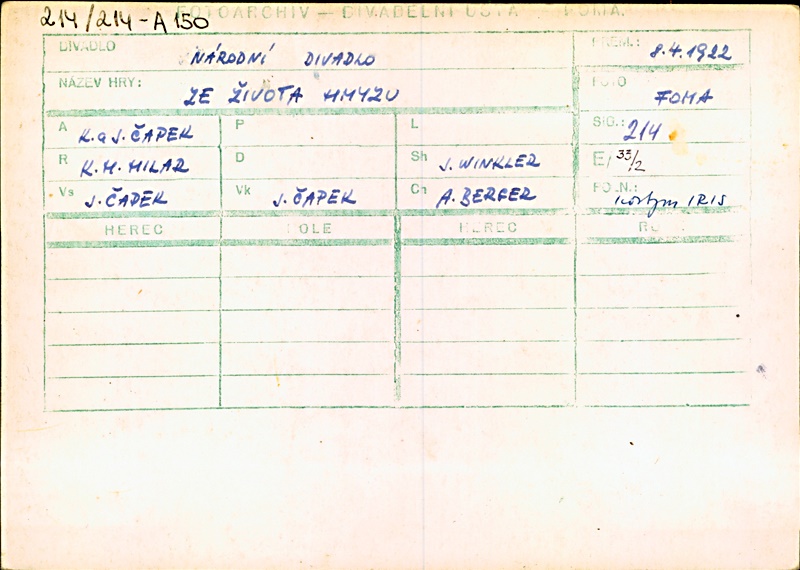 214/214-A150
FOTOARCHIV – DIVADELNÍ ÚSTAV
DIVADLO NÁRODNÍ DIVADLO
PREM.: 8.4.1922
NÁZEV HRY: ZE ŽIVOTA HMYZU
FOTO FOMA
A K. a J. ČAPEK P L
SIG.: 214
R K. H. HILAR D Sh J. WINKLER
E/ 33/2
Vs J. ČAPEK Vk J. ČAPEK Ch A. BERGER
POZN.: kostym IRIS
HEREC ROLE HEREC RO